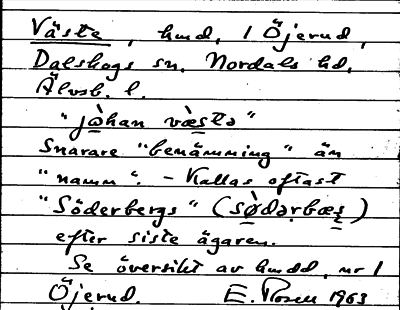 Väste, hmd, 1 Öjerud,
Dalskogs sn. Nordals hd,
Älvsb. l.
"jɑ̀han væ̀stə"
Snarare "benämning" än
"namn". - Kallas oftast
"Söderbergs" (sø̀dərbæʂ)
efter siste ägaren.
Se översikt av hmdd, nr 1
Öjerud. E. Rosen 1963